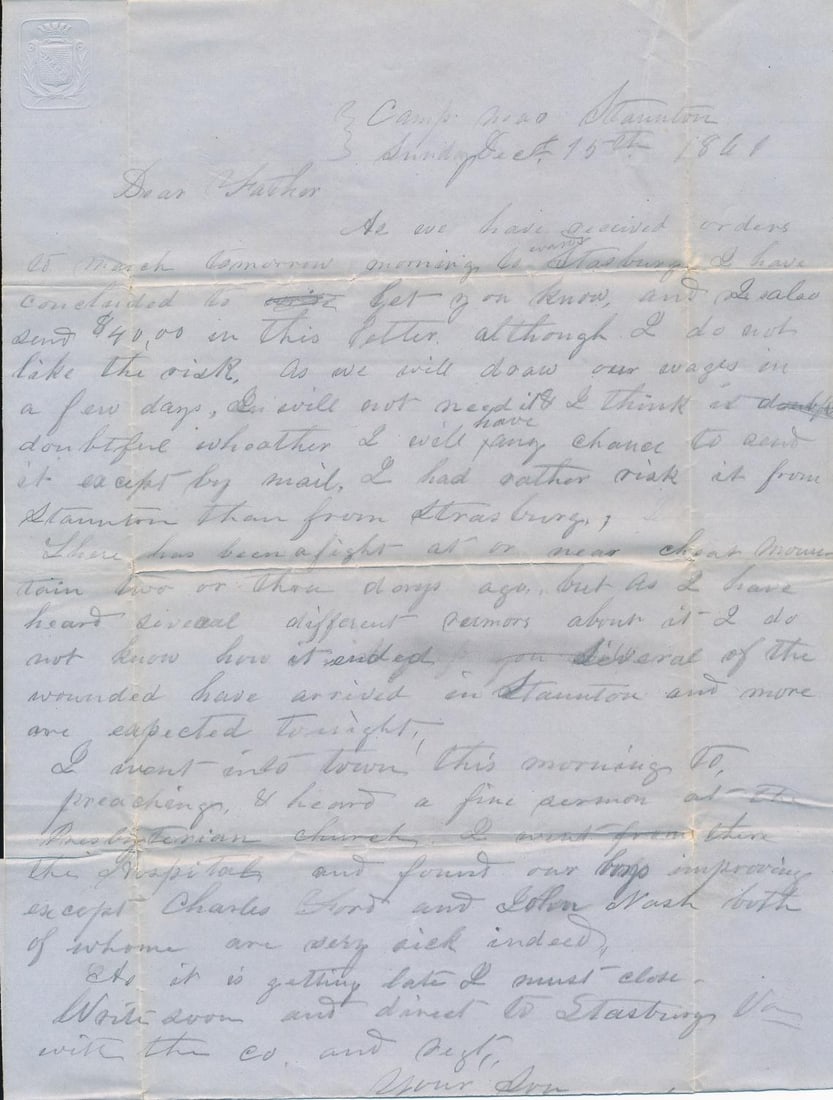 Camp near Staunton
Sunday Dect. 15th 1861
Dear Father
As we have received orders
to march tomorrow morning to wards Stasburg I have
concluded to write let you know, and I also
send $40,00 in this letter. although I do not
like the risk, As we will draw our wages in
a few days, I will not need it & I think it doubtf
doubtful wheather I will have any chance to send
it except by mail, I had rather risk it from
Staunton than from Strasburg,
There has been a fight at or near cheat moun
tain two or three days ago, but as I have
heard several different rumors about it I do
not know how it ended Several of the
wounded have arrived in Staunton and more
are expected tonight,
I went into town this morning to,
preaching, & heard a fine sermon at the
Presbyterian church, I went from there
the Hospital and found our boys improving
except Charles Ford and John Nash both
of whome are very sick indeed,
As it is getting late I must close-
Write soon and direct to Stasburg Va
with the co. and regt,
Your Son